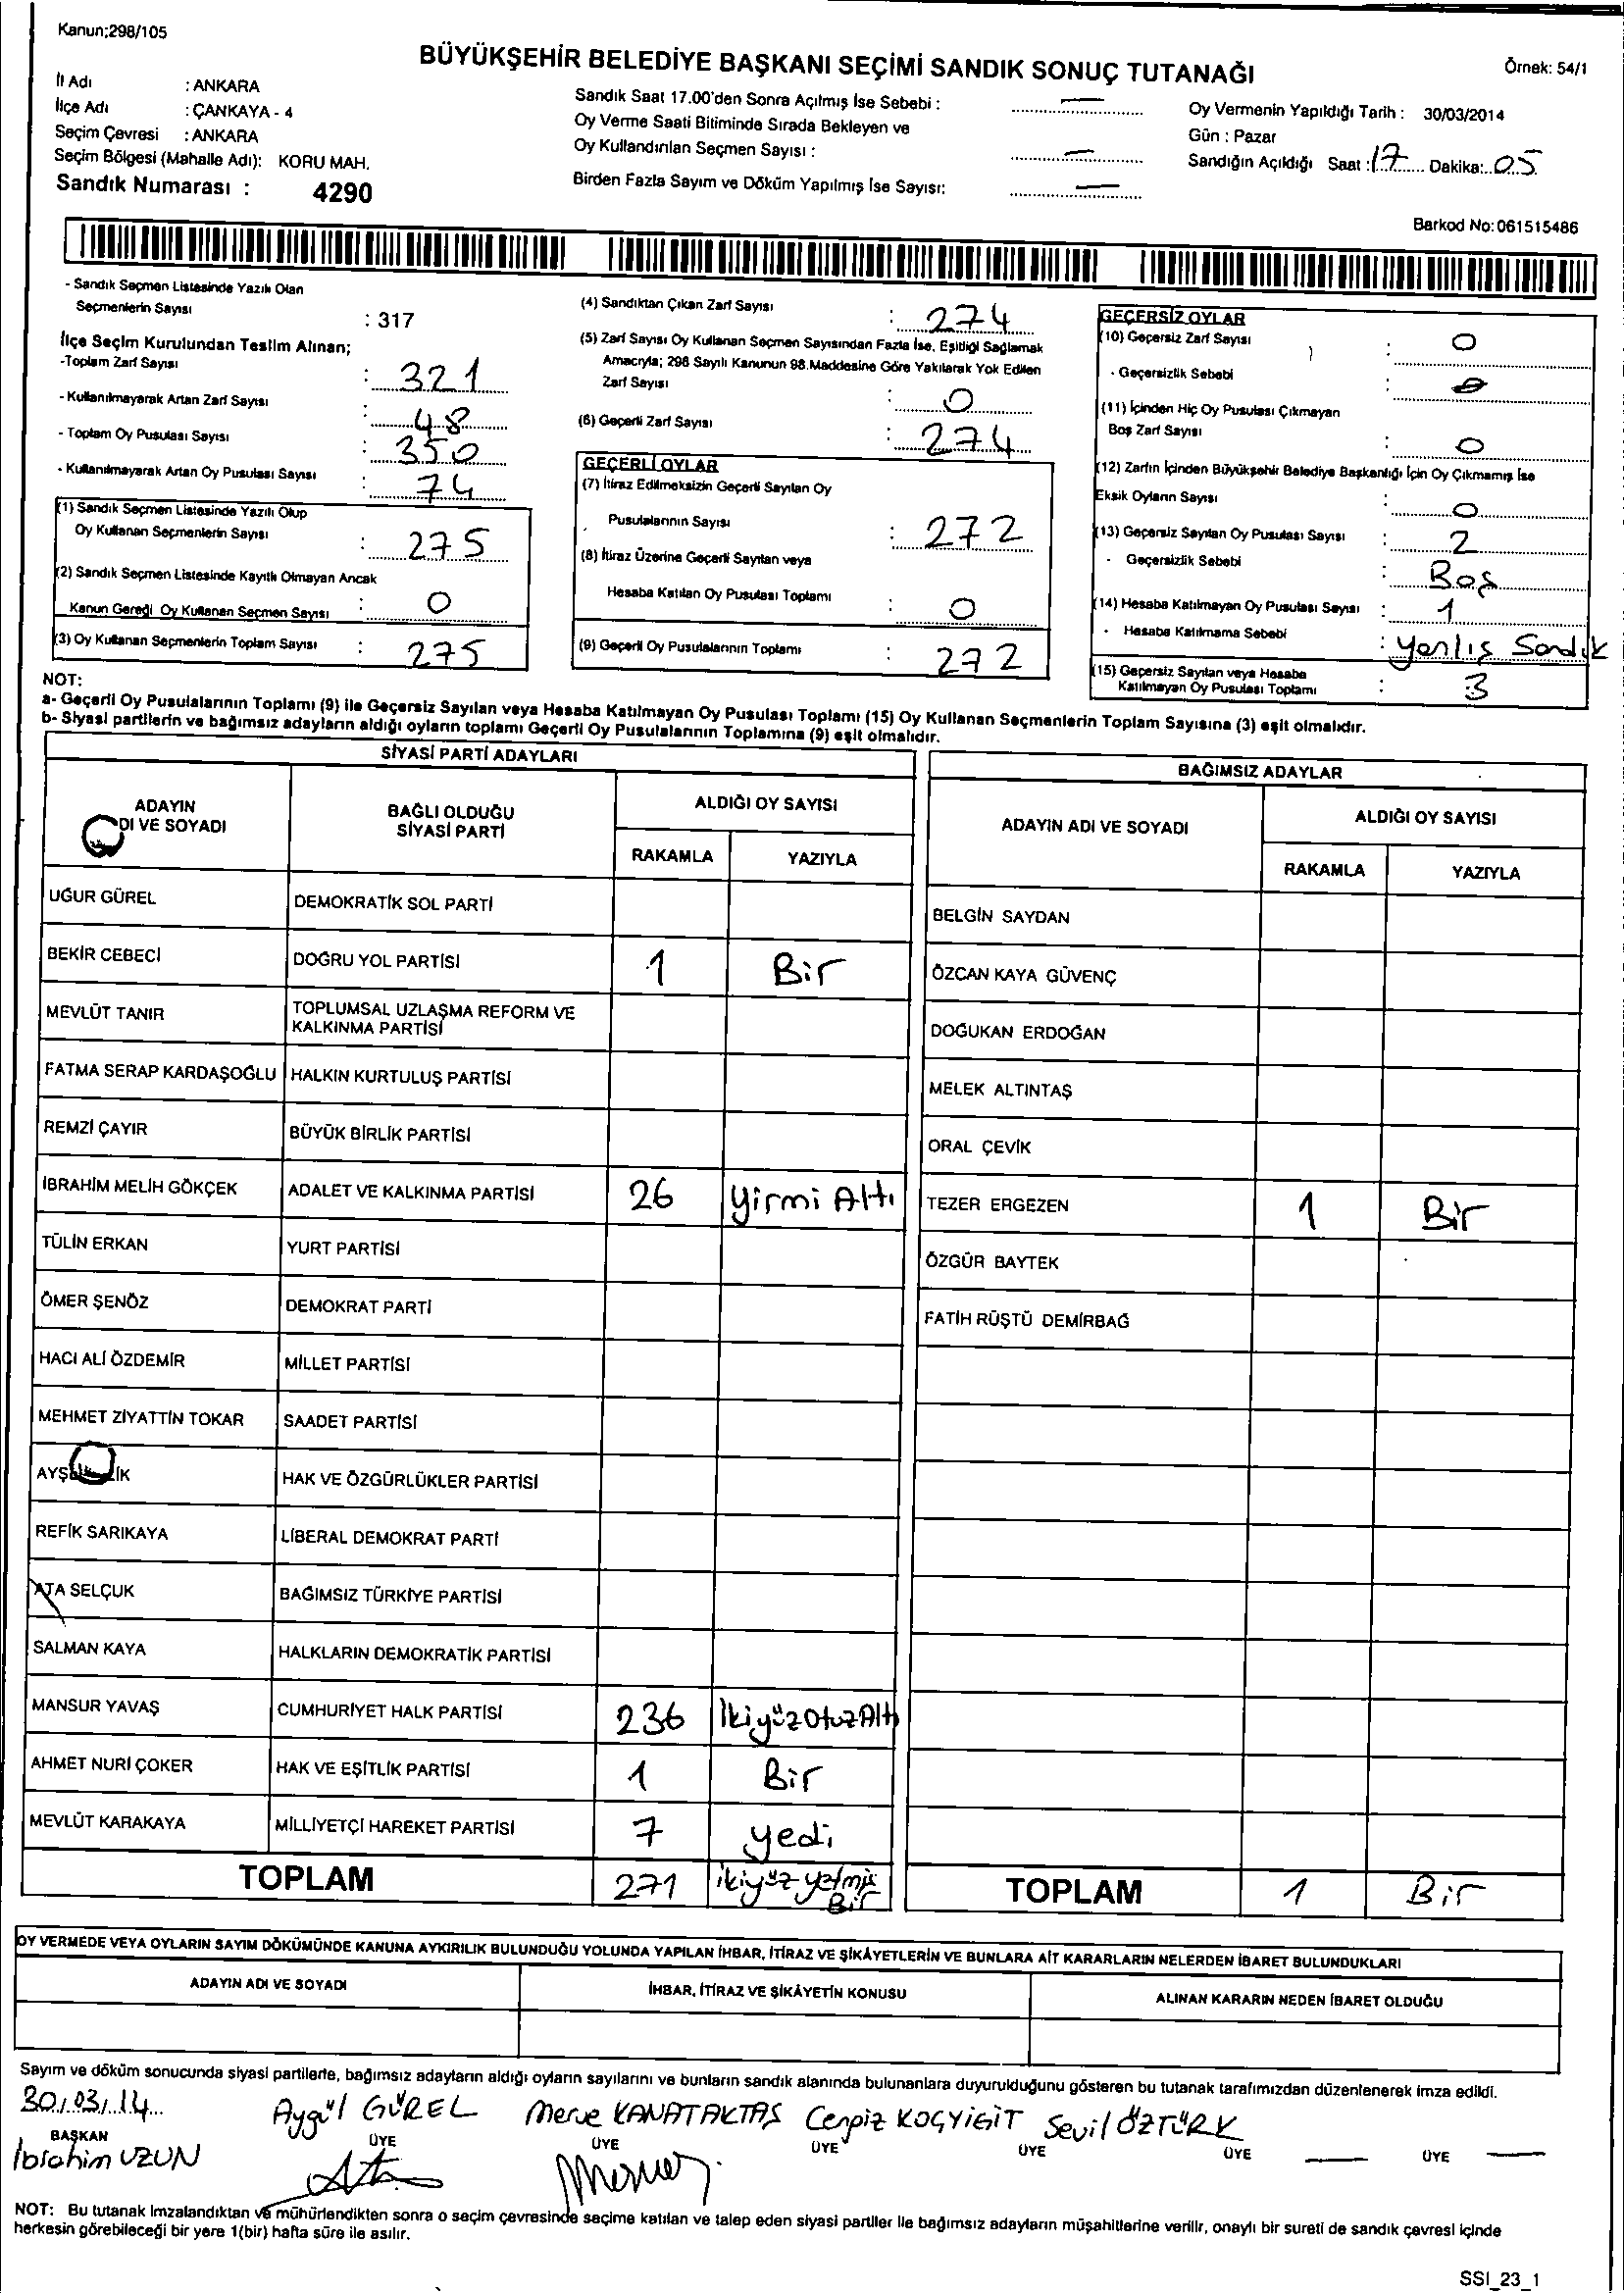 Kanun;298/105
BÜYÜKŞEHİR BELEDİYE BAŞKANI SEÇİMİ SANDIK SONUÇ TUTANAĞI
Örnek: 54/1
İl Adı : ANKARA
İlçe Adı : ÇANKAYA - 4
Seçim Çevresi : ANKARA
Seçim Bölgesi (Mahalle Adı): KORU MAH.
Sandık Numarası : 4290
Sandık Saat 17.00'den Sonra Açılmış İse Sebebi : —
Oy Verme Saati Bitiminde Sırada Bekleyen ve
Oy Kullandırılan Seçmen Sayısı : —
Birden Fazla Sayım ve Döküm Yapılmış İse Sayısı: —
Oy Vermenin Yapıldığı Tarih : 30/03/2014
Gün : Pazar
Sandığın Açıldığı Saat : 17 Dakika: 05
Barkod No:061515486
- Sandık Seçmen Listesinde Yazılı Olan
Seçmenlerin Sayısı : 317
İlçe Seçim Kurulundan Teslim Alınan;
-Toplam Zarf Sayısı : 321
- Kullanılmayarak Artan Zarf Sayısı : 48
- Toplam Oy Pusulası Sayısı : 350
- Kullanılmayarak Artan Oy Pusulası Sayısı : 74
(1) Sandık Seçmen Listesinde Yazılı Olup
Oy Kullanan Seçmenlerin Sayısı : 275
(2) Sandık Seçmen Listesinde Kayıtlı Olmayan Ancak
Kanun Gereği Oy Kullanan Seçmen Sayısı : 0
(3) Oy Kullanan Seçmenlerin Toplam Sayısı : 275
(4) Sandıktan Çıkan Zarf Sayısı : 274
(5) Zarf Sayısı Oy Kullanan Seçmen Sayısından Fazla İse, Eşitliği Sağlamak
Amacıyla; 298 Sayılı Kanunun 98.Maddesine Göre Yakılarak Yok Edilen
Zarf Sayısı : 0
(6) Geçerli Zarf Sayısı : 274
GEÇERLİ OYLAR
(7) İtiraz Edilmeksizin Geçerli Sayılan Oy
Pusulalarının Sayısı : 272
(8) İtiraz Üzerine Geçerli Sayılan veya
Hesaba Katılan Oy Pusulası Toplamı : 0
(9) Geçerli Oy Pusulalarının Toplamı : 272
GEÇERSİZ OYLAR
(10) Geçersiz Zarf Sayısı : 0
- Geçersizlik Sebebi : 0
(11) İçinden Hiç Oy Pusulası Çıkmayan
Boş Zarf Sayısı : 0
(12) Zarfın İçinden Büyükşehir Belediye Başkanlığı İçin Oy Çıkmamış İse
Eksik Oyların Sayısı : 0
(13) Geçersiz Sayılan Oy Pusulası Sayısı : 2
- Geçersizlik Sebebi : Boş
(14) Hesaba Katılmayan Oy Pusulası Sayısı : 1
- Hesaba Katılmama Sebebi : Yanlış Sandık
(15) Geçersiz Sayılan veya Hesaba
Katılmayan Oy Pusulası Toplamı : 3
NOT:
a- Geçerli Oy Pusulalarının Toplamı (9) ile Geçersiz Sayılan veya Hesaba Katılmayan Oy Pusulası Toplamı (15) Oy Kullanan Seçmenlerin Toplam Sayısına (3) eşit olmalıdır.
b- Siyasi partilerin ve bağımsız adayların aldığı oyların toplamı Geçerli Oy Pusulalarının Toplamına (9) eşit olmalıdır.
SİYASİ PARTİ ADAYLARI
ADAYIN DI VE SOYADI
BAĞLI OLDUĞU SİYASİ PARTİ
ALDIĞI OY SAYISI
RAKAMLA YAZIYLA
UĞUR GÜREL DEMOKRATİK SOL PARTİ
BEKİR CEBECİ DOĞRU YOL PARTİSİ 1 Bir
MEVLÜT TANIR TOPLUMSAL UZLAŞMA REFORM VE KALKINMA PARTİSİ
FATMA SERAP KARDAŞOĞLU HALKIN KURTULUŞ PARTİSİ
REMZİ ÇAYIR BÜYÜK BİRLİK PARTİSİ
İBRAHİM MELİH GÖKÇEK ADALET VE KALKINMA PARTİSİ 26 Yirmi Altı
TÜLİN ERKAN YURT PARTİSİ
ÖMER ŞENÖZ DEMOKRAT PARTİ
HACI ALİ ÖZDEMİR MİLLET PARTİSİ
MEHMET ZİYATTİN TOKAR SAADET PARTİSİ
HAK VE ÖZGÜRLÜKLER PARTİSİ
REFİK SARIKAYA LİBERAL DEMOKRAT PARTİ
ATA SELÇUK BAĞIMSIZ TÜRKİYE PARTİSİ
SALMAN KAYA HALKLARIN DEMOKRATİK PARTİSİ
MANSUR YAVAŞ CUMHURİYET HALK PARTİSİ 236 İkiyüzOtuzAltı
AHMET NURİ ÇOKER HAK VE EŞİTLİK PARTİSİ 1 Bir
MEVLÜT KARAKAYA MİLLİYETÇİ HAREKET PARTİSİ 7 Yedi
TOPLAM 271 ikiyüz yetmiş Bir
BAĞIMSIZ ADAYLAR
ADAYIN ADI VE SOYADI
ALDIĞI OY SAYISI
RAKAMLA YAZIYLA
BELGİN SAYDAN
ÖZCAN KAYA GÜVENÇ
DOĞUKAN ERDOĞAN
MELEK ALTINTAŞ
ORAL ÇEVİK
TEZER ERGEZEN 1 Bir
ÖZGÜR BAYTEK
FATİH RÜŞTÜ DEMİRBAĞ
TOPLAM 1 Bir
OY VERMEDE VEYA OYLARIN SAYIM DÖKÜMÜNDE KANUNA AYKIRILIK BULUNDUĞU YOLUNDA YAPILAN İHBAR, İTİRAZ VE ŞİKÂYETLERİN VE BUNLARA AİT KARARLARIN NELERDEN İBARET BULUNDUKLARI
ADAYIN ADI VE SOYADI İHBAR, İTİRAZ VE ŞİKÂYETİN KONUSU ALINAN KARARIN NEDEN İBARET OLDUĞU
Sayım ve döküm sonucunda siyasi partilerle, bağımsız adayların aldığı oyların sayılarını ve bunların sandık alanında bulunanlara duyurulduğunu gösteren bu tutanak tarafımızdan düzenlenerek imza edildi.
30/03/14
Aygül GÜREL Merve KANATAKTAŞ Cengiz KOÇYİĞİT Sevil ÖZTÜRK
BAŞKAN ÜYE ÜYE ÜYE ÜYE ÜYE — ÜYE —
İbrahim UZUN
NOT: Bu tutanak imzalandıktan ve mühürlendikten sonra o seçim çevresinde seçime katılan ve talep eden siyasi partiler ile bağımsız adayların müşahitlerine verilir, onaylı bir sureti de sandık çevresi içinde
herkesin görebileceği bir yere 1(bir) hafta süre ile asılır.
SSI_23_1